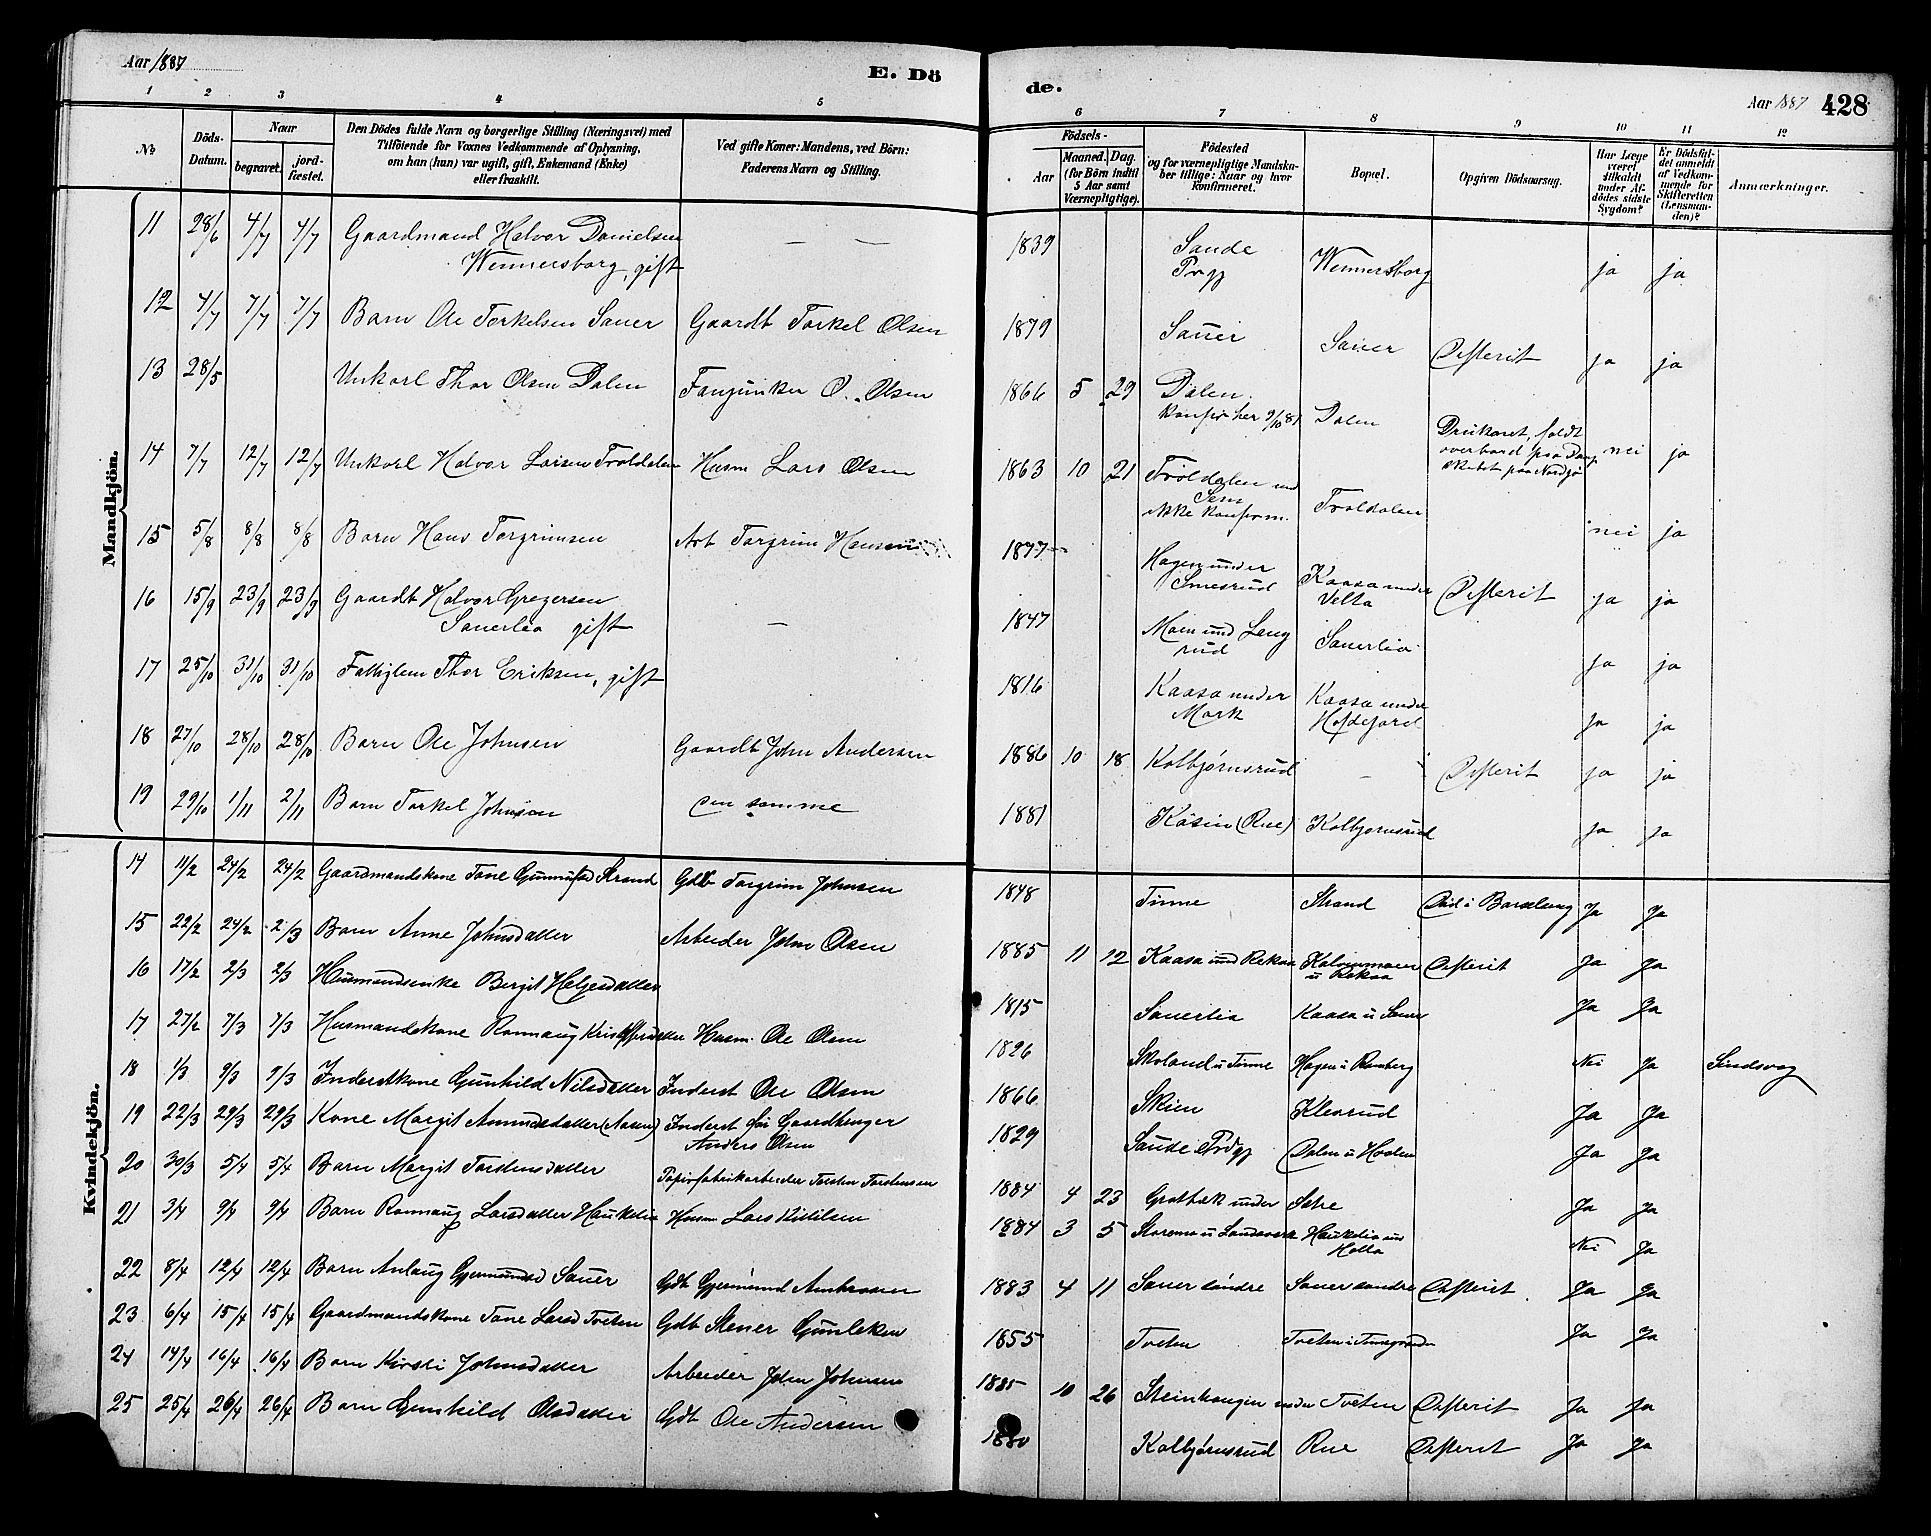 Aar 1887
E. Dö
de.
Aar 1887 428
1 2 3 4 5 6 7 8 9 10 11 12
No
Döds-Datum.
Naar
begravet.
jord-fæstet.
Den Dödes fulde Navn og borgerlige Stilling (Næringsvei) med
Tilföiende for Voxnes Vedkommende af Oplysning,
om han (hun) var ugift, gift, Enkemand (Enke)
eller fraskilt.
Ved gifte Koner: Mandens, ved Börn:
Faderens Navn og Stilling.
Födsels-
Aar
Maaned. Dag.
(for Börn indtil
5 Aar samt
Værnepligtige).
Födested
og for værnepligtige Mandska-
ber tillige: Naar og hvor
konfirmeret.
Bopæl.
Opgiven Dödsaarsag.
Har Læge
været
tilkaldt
under Af-
dödes sidste
Sygdom?
Er Dödsfal-
det anmeldt
af Vedkom-
mende for
Skifteretten
(Lensman-
den)?
Anmærkninger.
Mandkjön.
11 28/6 4/7 4/7 Gaardmand Halvor Danielsen — — 1839 Saude Wennersborg ja ja
Wennersborg, gift Prgj
12 4/7 7/7 7/7 Barn Ole Torkelsen Sauer Gaardb Torkel Olsen 1879 Sauer Sauer Difterit ja ja
13 28/5 Unkarl Thor Olsen Dalen Fanejunker O. Olsen 1866 5 29 Dalen. Dalen Druknet, faldt nei ja
konfir her 9/10 81 overbord fra Damp
skibet paa Nordsjø
14 7/7 12/7 12/7 Unkarl Halvor Larsen Troldalen Husm Lars Olsen 1863 10 21 Troldalen und Troldalen nei ja
Sem
ikke konfirm.
15 5/8 8/8 8/8 Barn Hans Torgrimsen Arb Torgrim Hansen 1877 Hagen under Kaasa under Difterit ja ja
Smesrud Velta
16 15/9 23/9 23/9 Gaardb Halvor Gregersen — 1847 Moen und Leng Sauerlia ja ja
Sauerlia gift rud
17 25/10 31/10 31/10 Fattiglem Thor Eriksen, gift 1816 Kaasa under Kaasa under ja ja
Mark
18 27/10 28/10 28/10 Barn Ole Johnsen Gaardb John Andersen 1886 10 18 Kolbjørnsrud — Difterit ja ja
19 29/10 1/11 2/11 Barn Torkel Johnsen den samme 1881 Kåsin (Rue) Kolbjørnsrud ja ja
Kvindekjön.
14 11/2 24/2 24/2 Gaardmandskone Tone Strand Gdb Torgrim Johnsen 1848 Tinne Strand Død i Barselseng Ja Ja
15 22/2 24/2 2/3 Barn Anne Johnsdatter Arbeider John Olsen 1885 11 12 Kaasa und Rekaa u Rekaa Difterit Ja Ja
16 17/2 2/3 2/3 Husmandsenke Bergit Helgesdatter 1815 Sauerlia Kaasa u Sauer Ja Ja
17 27/2 7/3 7/3 Husmandskone Ronnaug Kristoffersdatter Husm. Ole Olsen 1826 Skoland u Tinne Hagen u Romberg Nei Ja Sindsvag
18 1/3 9/3 9/3 Inderstkone Gunhild Nilsdatter Inderst Ole Olsen 1866 Skien Klevrud Ja Ja
19 22/3 29/3 29/3 Kone Margit Amundsdatter (Aasen) Inderst før Gaardbruger 1829 Saude Prdgj Dalen u Haden Ja Ja
Anders Olsen
20 30/3 5/4 5/4 Barn Margit Torstensdatter Papirfabrikarbeider Torsten Torstensen 1884 4 23 Grotbæk under Sætre Ja Ja
21 3/4 9/4 9/4 Barn Ronnaug Larsdatter Haukelia Husm Lars Kittilsen 1884 3 5 Haukelia und Nei Ja
Holta
22 8/4 12/4 12/4 Barn Anlaug Gjermundsd Sauer Gdb Gjermund 1883 4 11 Sauer søndre Sauer søndre Difterit Ja Ja
23 6/4 15/4 15/4 Gaardmandskone Tone Larsd Tveten Gdb Stener Gunleksen 1855 Tveten Ja Ja
24 14/4 16/4 16/4 Barn Kirsti Johnsdatter Arbeider John Johnsen 1885 10 26 Steinhaugen under Tveten Difterit Ja Ja
25 25/4 26/4 26/4 Barn Gunhild Olsdatter Gdb Ole Andersen 1880 Kolbjørnsrud Rue Difterit Ja Ja